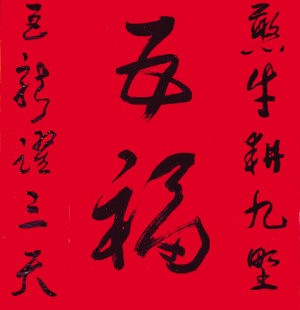 憨牛耕九野
五福
龍躍三天